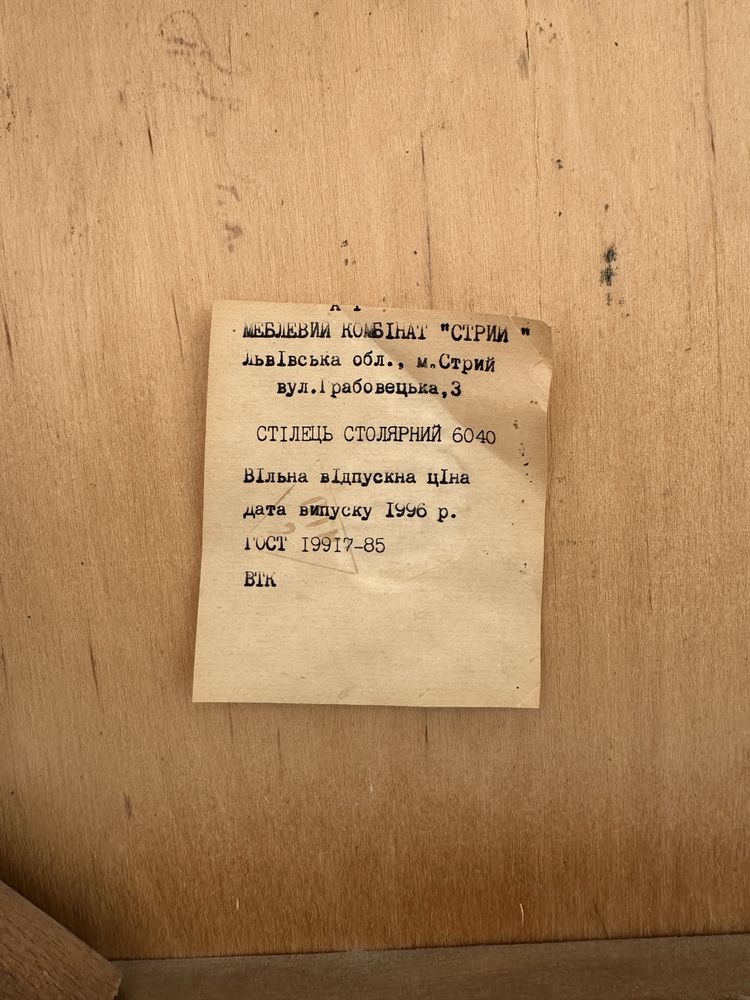 МЕБЛЕВИЙ КОМБІНАТ "СТРИЙ "
Львівська обл., м.Стрий
вул.Грабовецька,3
СТІЛЕЦЬ СТОЛЯРНИЙ 6040
Вільна відпускна ціна
Дата випуску 1996 р.
ГОСТ 19917-85
ВТК